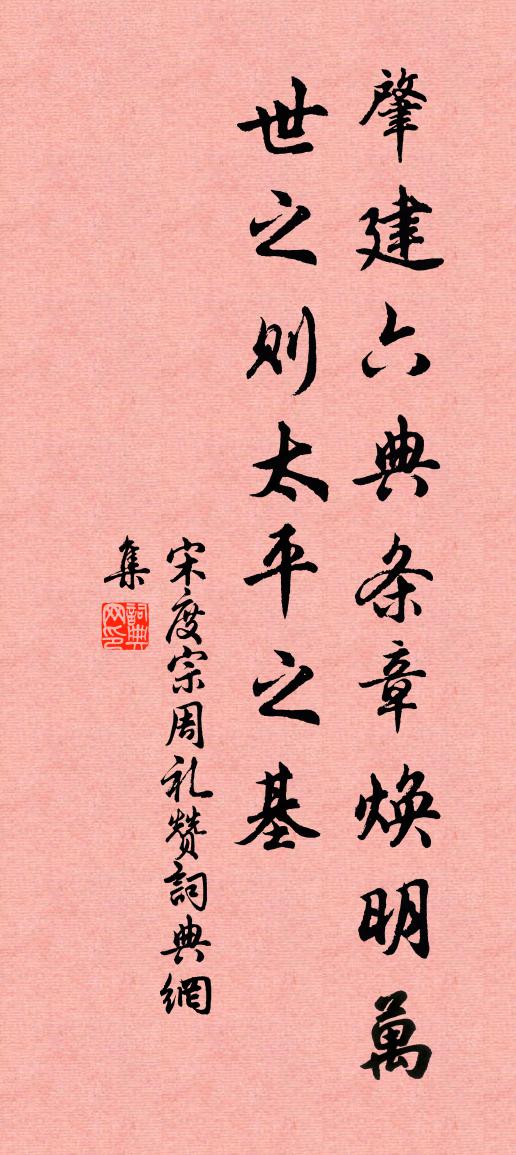 肇建六典条章焕明萬
世之则太平之基
宋度宗周礼赞詞典網
集
詞典網印